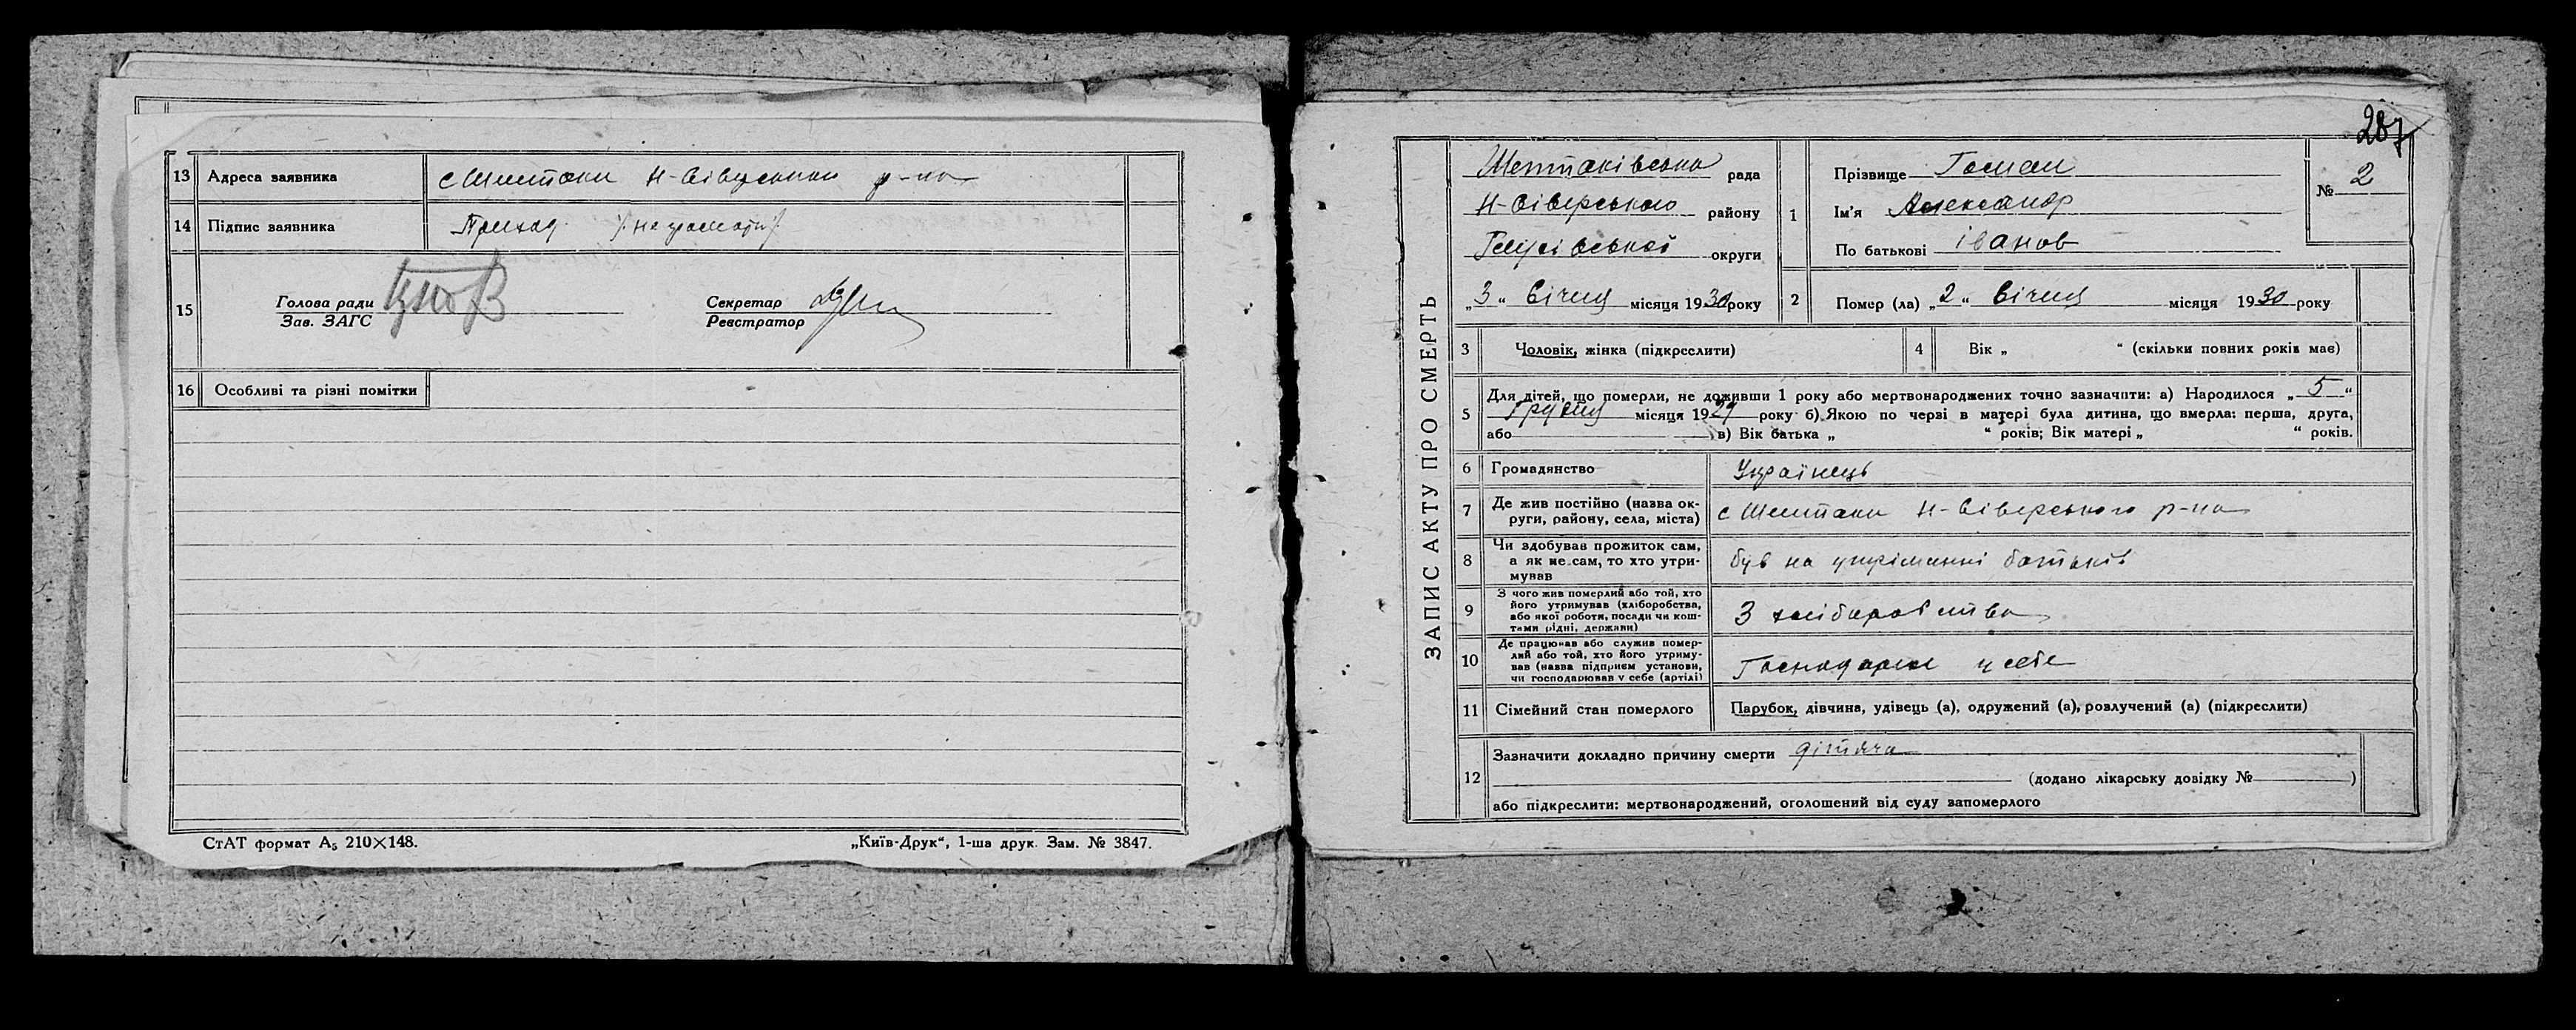 13 Адреса заявника с Шептаки Н-Сіверського р-на
14 Підпис заявника /неграмотн/
15 Голова ради
Зав. ЗАГС
Секретар
Реєстратор
16 Особливі та різні помітки
СтАТ формат А₅ 210×148.
„Київ-Друк“, 1-ша друк. Зам. № 3847.
287
ЗАПИС АКТУ ПРО СМЕРТЬ
Шептаківська рада
Н-Сіверського району
Глухівської округи
„3“ Січня місяця 1930 року
1 Прізвище
Ім'я Александр
По батькові Іванов
№ 2
2 Помер (ла) „2“ Січня місяця 1930 року
3 Чоловік, жінка (підкреслити)
4 Вік „ “ (скільки повних років має)
5 Для дітей, що померли, не доживши 1 року або мертвонароджених точно зазначити: а) Народилося „5“
Грудня місяця 1929 року б) Якою по черзі в матері була дитина, що вмерла: перша, друга,
або в) Вік батька „ “ років; Вік матері „ “ років.
6 Громадянство Українець
7 Де жив постійно (назва ок-
руги, району, села, міста) с Шептаки Н-Сіверського р-на
8 Чи здобував прожиток сам,
а як не сам, то хто утри-
мував був на утріманні батьків
9 З чого жив померлий або той, хто
його утримував (хліборобства,
або якої роботи, посади чи кош-
тами рідні, держави) З хліборобства
10 Де працював або служив помер-
лий або той, хто його утриму-
вав (назва підприєм установи,
чи господарював у себе (артілі) у себе
11 Сімейний стан померлого Парубок, дівчина, удівець (а), одружений (а), розлучений (а) (підкреслити)
12 Зазначити докладно причину смерти дітяча
(додано лікарську довідку № )
або підкреслити: мертвонароджений, оголошений від суду запомерлого